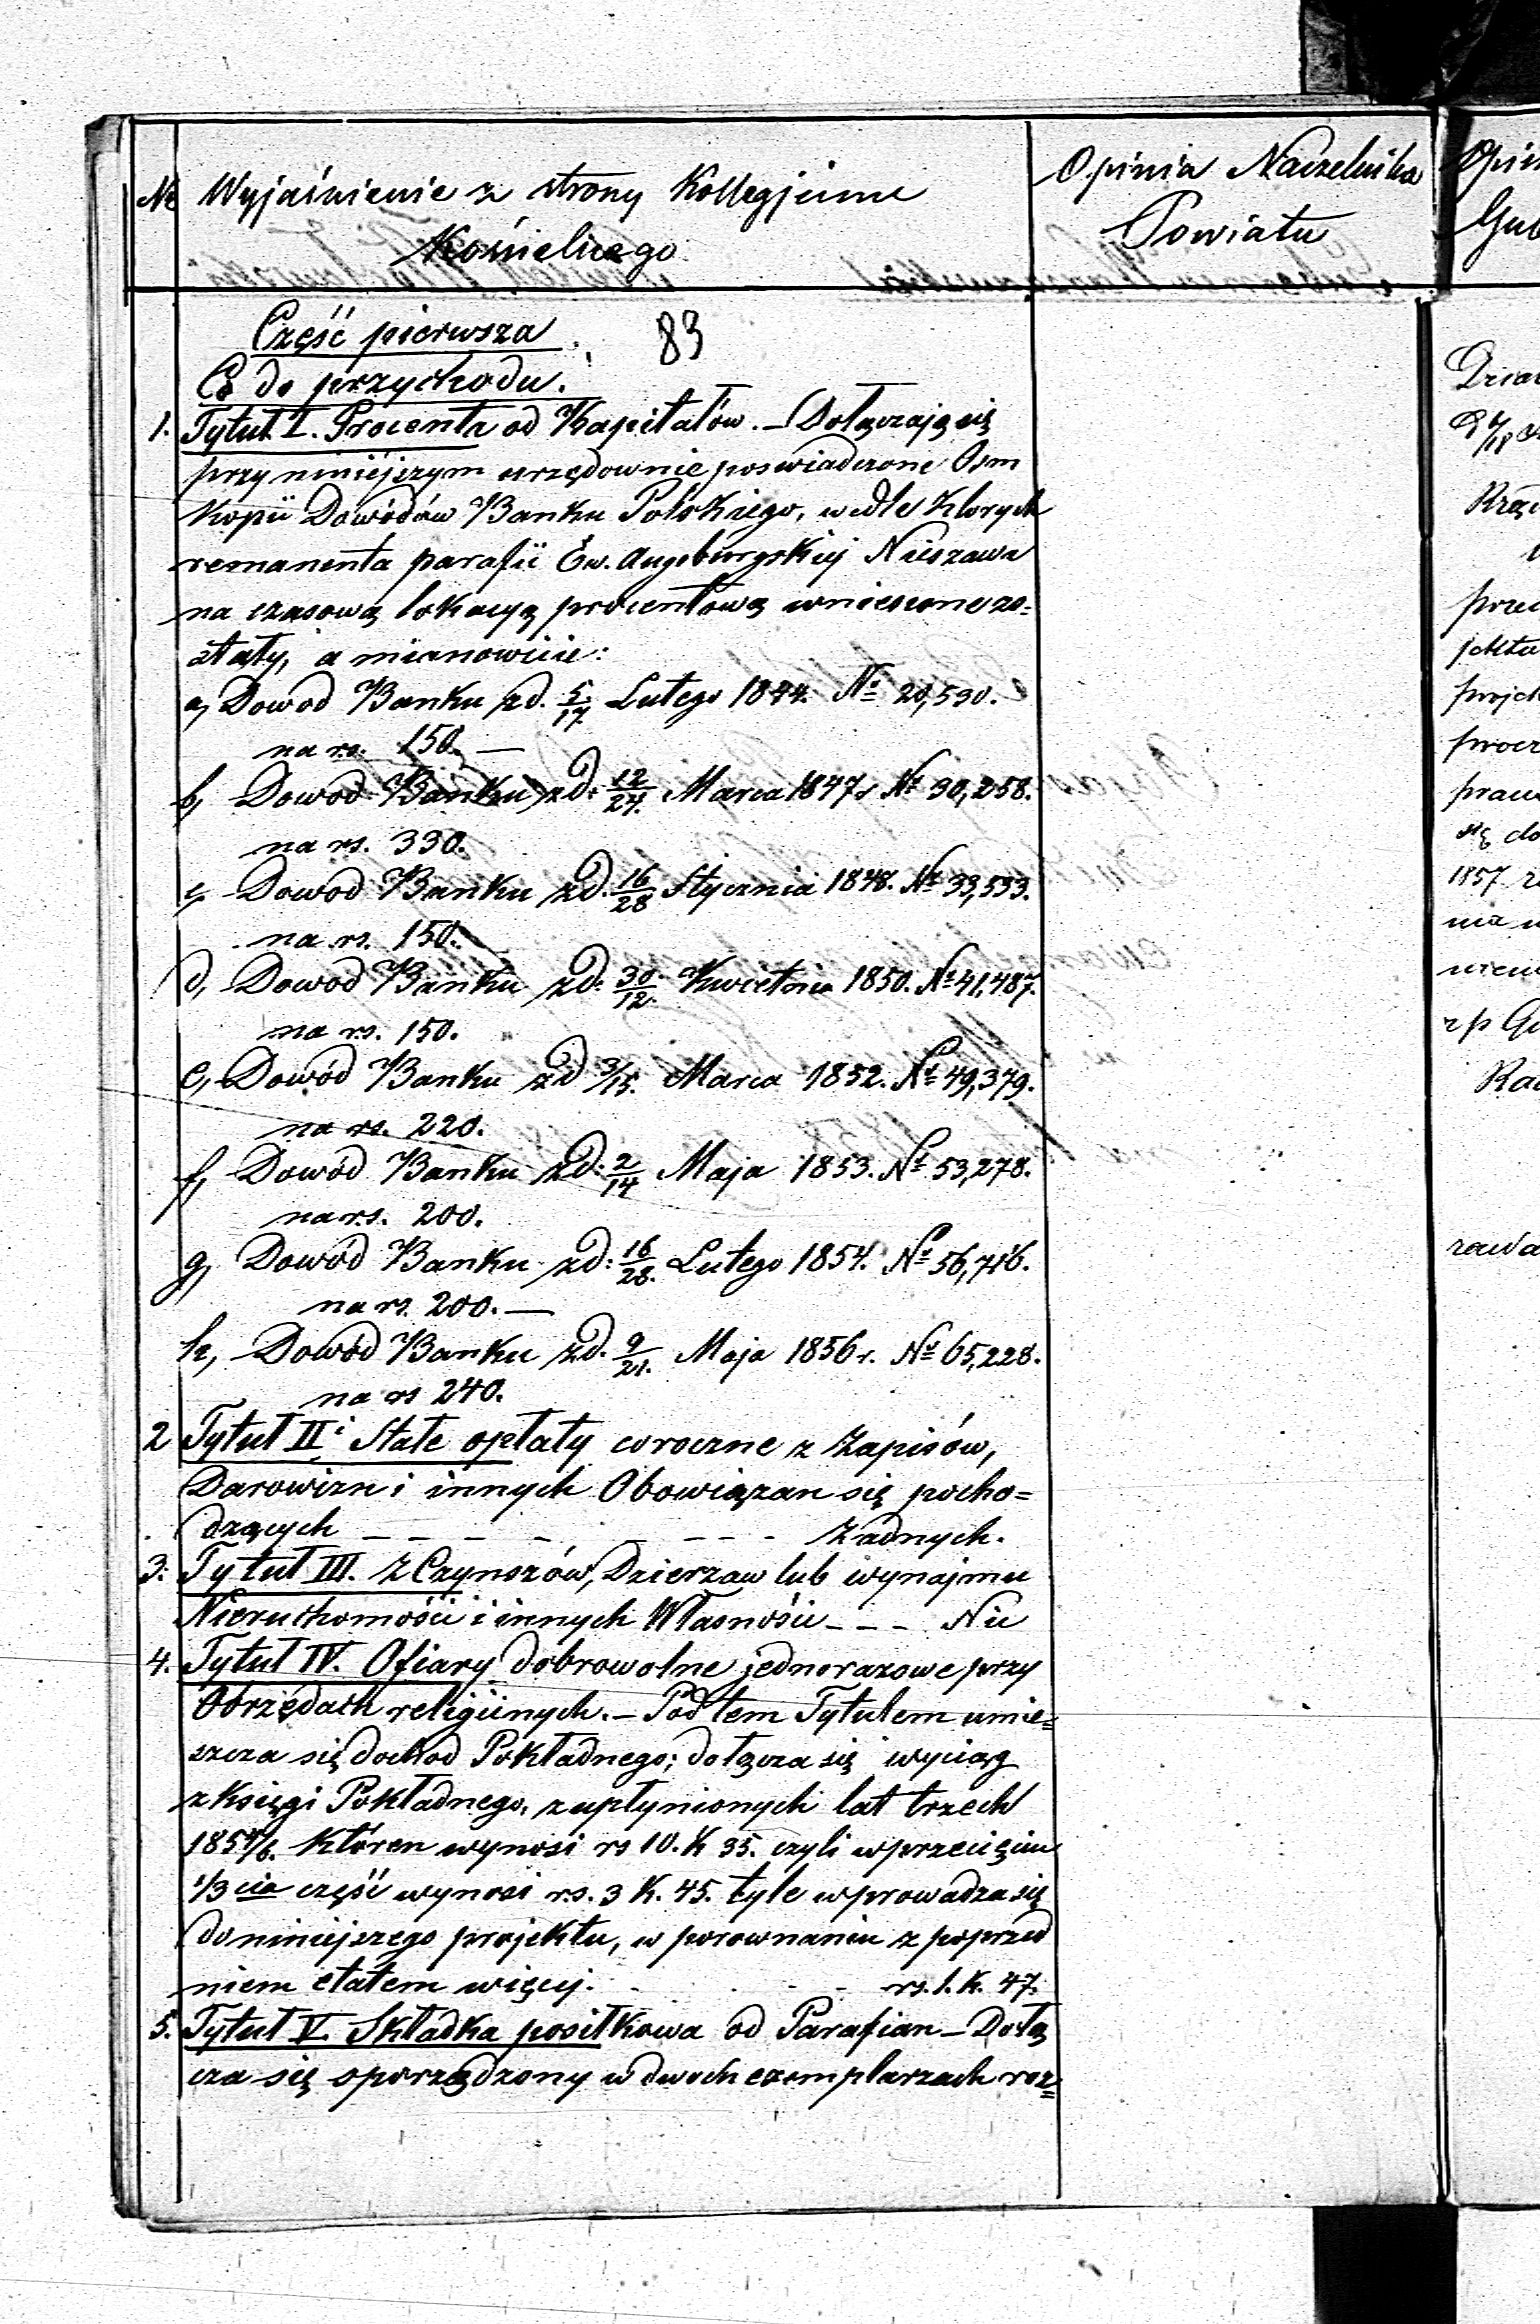 № Wyjaśnienie z strony Kollegjum
Kościelnego
Opinia Naczelnika
Powiatu
Część pierwsza
83
Co do przychodu.
1. Tytuł I. Procenta od Kapitałów. – Dołączają się
przy niniejszym urzędownie poswiadczone Osm
Kopii Dowódów Banku Polskiego, wedleKtorych
remanenta parafii Ew. Augsburgskiej Nieszawa
na czasową lokacyą procentową wniesione zo=
stały, a mianowicie:
a, Dowod Banku z d. 5/17 Lutego 1844. № 20,530.
na rs. 150. —
b, Dowod Banku z d: 12/24. Marca 1847 r № 30,258.
na rs. 330.
c, Dowod Banku z d. 16/28 Stycznia 1848. № 33,533.
na rs. 150.
d, Dowod Banku z d: 30/12. Kwietnia 1850. № 41,487.
na rs. 150.
e, Dowód Banku z d 3/15. Marca 1852. № 49,379.
na rs. 220.
f, Dowód Banku z d: 2/14 Maja 1853. № 53,278.
na rs. 200.
g, Dowód Banku z d: 16/28. Lutego 1854. № 56,746.
na rs. 200. —
h, Dowód Banku z d. 9/21. Maja 1856 r. № 65,228.
na rs 240.
2 Tytuł II. Stałe opłaty coroczne z Zapisów,
Darowizn i innych Obowiązan się pocho=
dzących – – – – – – – Żadnych.
3. Tytuł III. Z Czynszów, Dzierzaw lub wynajmu
Nieruchomości i innych Własności – – – Nic
4. Tytuł IV. Ofiary dobrowolne jednorazowe przy
Obrzędach religiinych. – Pod tem Tytułem umie=
szcza się dochod Pokładnego; dołącza się wyciąg
z Księgi Pokładnego, z upłynionych lat trzech
1854/6. Któren wynosi rs 10. K 35. czyli w przecięciu
1/3 cia część wynosi rs. 3 K. 45. tyle wprowadza się
do niniejszego projektu, w porownaniu z poprzed
niem etatem więcej. – – rs. 1. K. 47.
5. Tytuł V. Składka posiłkowa od Parafian – Dołą
cza się sporządzony w dwoch exemplarzach roz=
Gub
przed
projek
1857